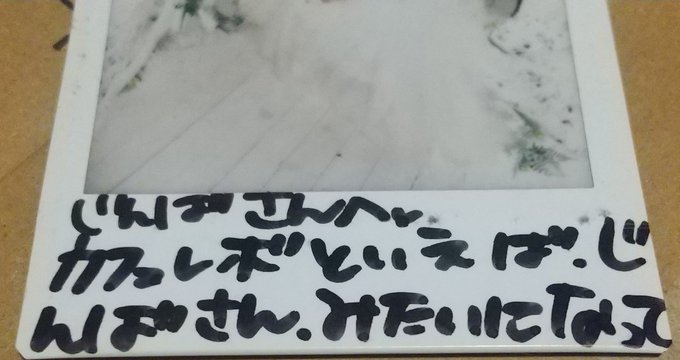 じんばさんへ
カフェレボといえば、じ
んばさん、みたいになって